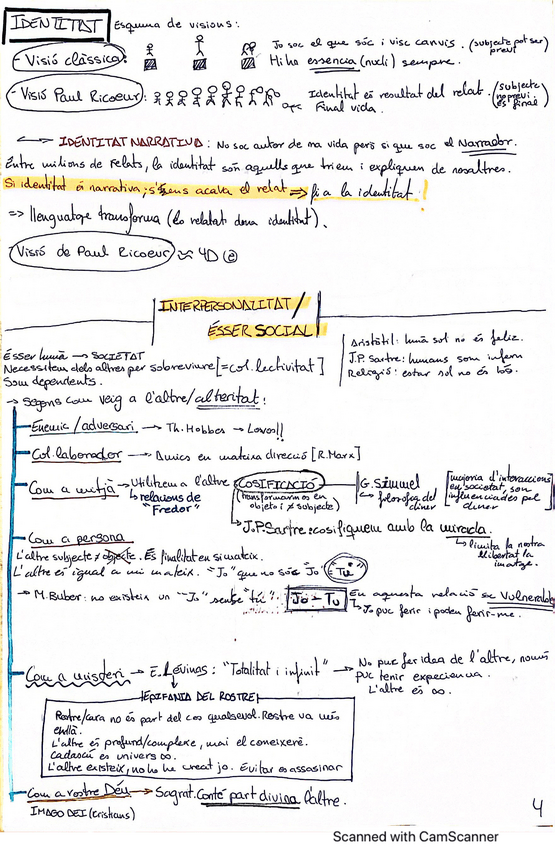 IDENTITAT Esquema de visions:
Visió clàssica: Jo soc el que sóc i visc canvis. (subjecte pot ser previ)
Hi ha essència (nucli) sempre.
Visió Paul Ricoeur: Identitat és resultat del relat. (subjecte no previ és final)
Final vida.
IDENTITAT NARRATIVA: No soc autor de ma vida però si que soc el Narrador.
Entre milions de relats, la identitat són aquells que triem i expliquem de nosaltres.
Si identitat és narrativa; s'ens acaba el relat => fi a la identitat!
=> llenguatge transforma (lo relatat dona identitat).
Visió de Paul Ricoeur ≈ 4D
INTERPERSONALITAT/
ÉSSER SOCIAL
Aristòtil: humà sol no és feliç.
J.P. Sartre: humans som infern
Religió: estar sol no és bo.
Ésser humà → SOCIETAT
Necessitem dels altres per sobreviure [=col.lectivitat]
Som dependents.
→ Segons com veig a l'altre/alteritat:
Enemic/adversari → Th. Hobbes → Lovos!!
Col.laborador → Amics en mateixa direcció [R. Marx]
Com a mitjà → Utilitzem a l'altre COSIFICACIÓ G. Simmel [majoria d'interaccions en societat, son influenciades pel diner
↳ relacions de "Fredor" (transformarnos en objecte i ≠ subjecte) ↳ filosofia del diner
→ J.P. Sartre: cosifiquem amb la mirada.
↳ limita la nostra llibertat la imatge.
Com a persona
L'altre subjecte ≠ objecte. És finalitat en si mateix.
L'altre es igual a mi mateix. "Jo" que no sóc "Jo" = "Tu"
→ M. Buber: no existeix un "Jo" sense "tú". Jo - Tu En aquesta relació sóc Vulnerable
↳ Jo puc ferir i poden ferir-me.
Com a misteri → E. Lévinas: "Totalitat i infinit" → No puc fer idea de l'altre, només
puc tenir experiencia.
L'altre es ∞.
EPIFANIA DEL ROSTRE
Rostre/cara no és part del cos qualsevol. Rostre va més
enllà.
L'altre és profund/complexe, mai el coneixerè.
Cadascú es univers ∞.
L'altre existeix, no ho he creat jo. Evitar es assassinar
Com a rostre Déu → Sagrat. Conté part divina l'altre.
IMAGO DEI (cristians)
4
Scanned with CamScanner